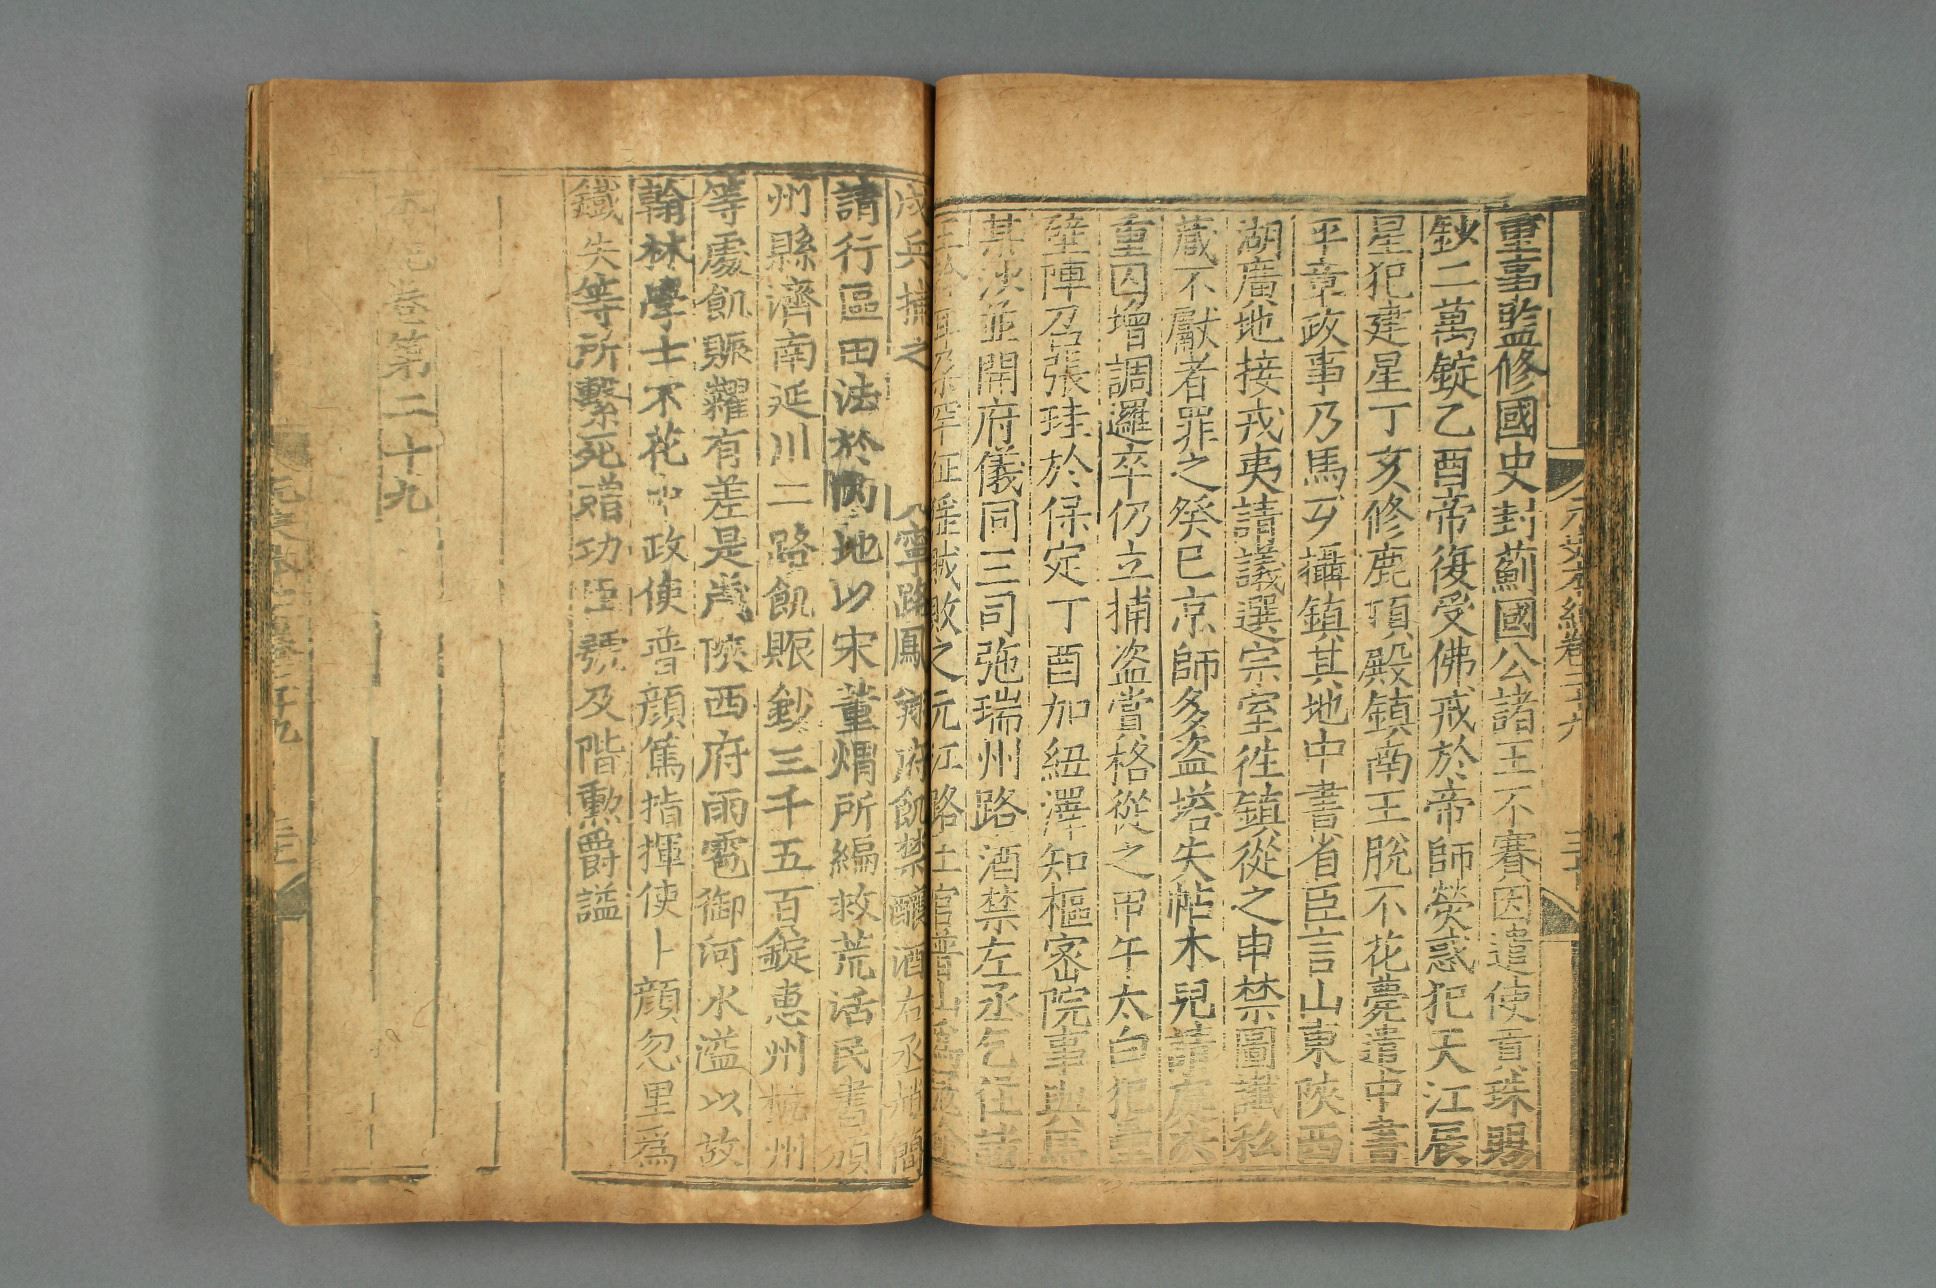 重事監修國史封薊國公諸王不賽因遣使貢珠賜
鈔二萬錠乙酉帝復受佛戒於帝師熒惑犯天江辰
星犯建星丁亥修鹿頂殿鎮南王脫不花薨遣中書
平章政事乃馬歹攝鎮其地中書省臣言山東陝西
湖廣地接戎夷請議選宗室往鎮從之申禁圖讖私
藏不獻者罪之癸巳京師多盜塔失帖木兒請處決
重囚增調邏卒仍立捕盜賞格從之甲午太白犯壘
壁陣召張珪於保定丁酉加紐澤知樞密院事與馬
某沙並開府儀同三司弛瑞州路酒禁左丞乞住諸
王 征猺賊敗之元江路土官普山為寇命
戍兵捕之 寧路鳳翔府飢禁釀酒右丞趙簡
請行區田法於內地以宋董煟所編救荒活民書頒
州縣濟南延川二路飢賑鈔三千五百錠惠州杭州
等處飢賑糶有差是歲陝西府雨雹御河水溢以故
翰林學士不花中政使普顏篤指揮使卜顏忽里為
鐵失等所繫死贈功臣號及階勳爵謚
卷第二十九